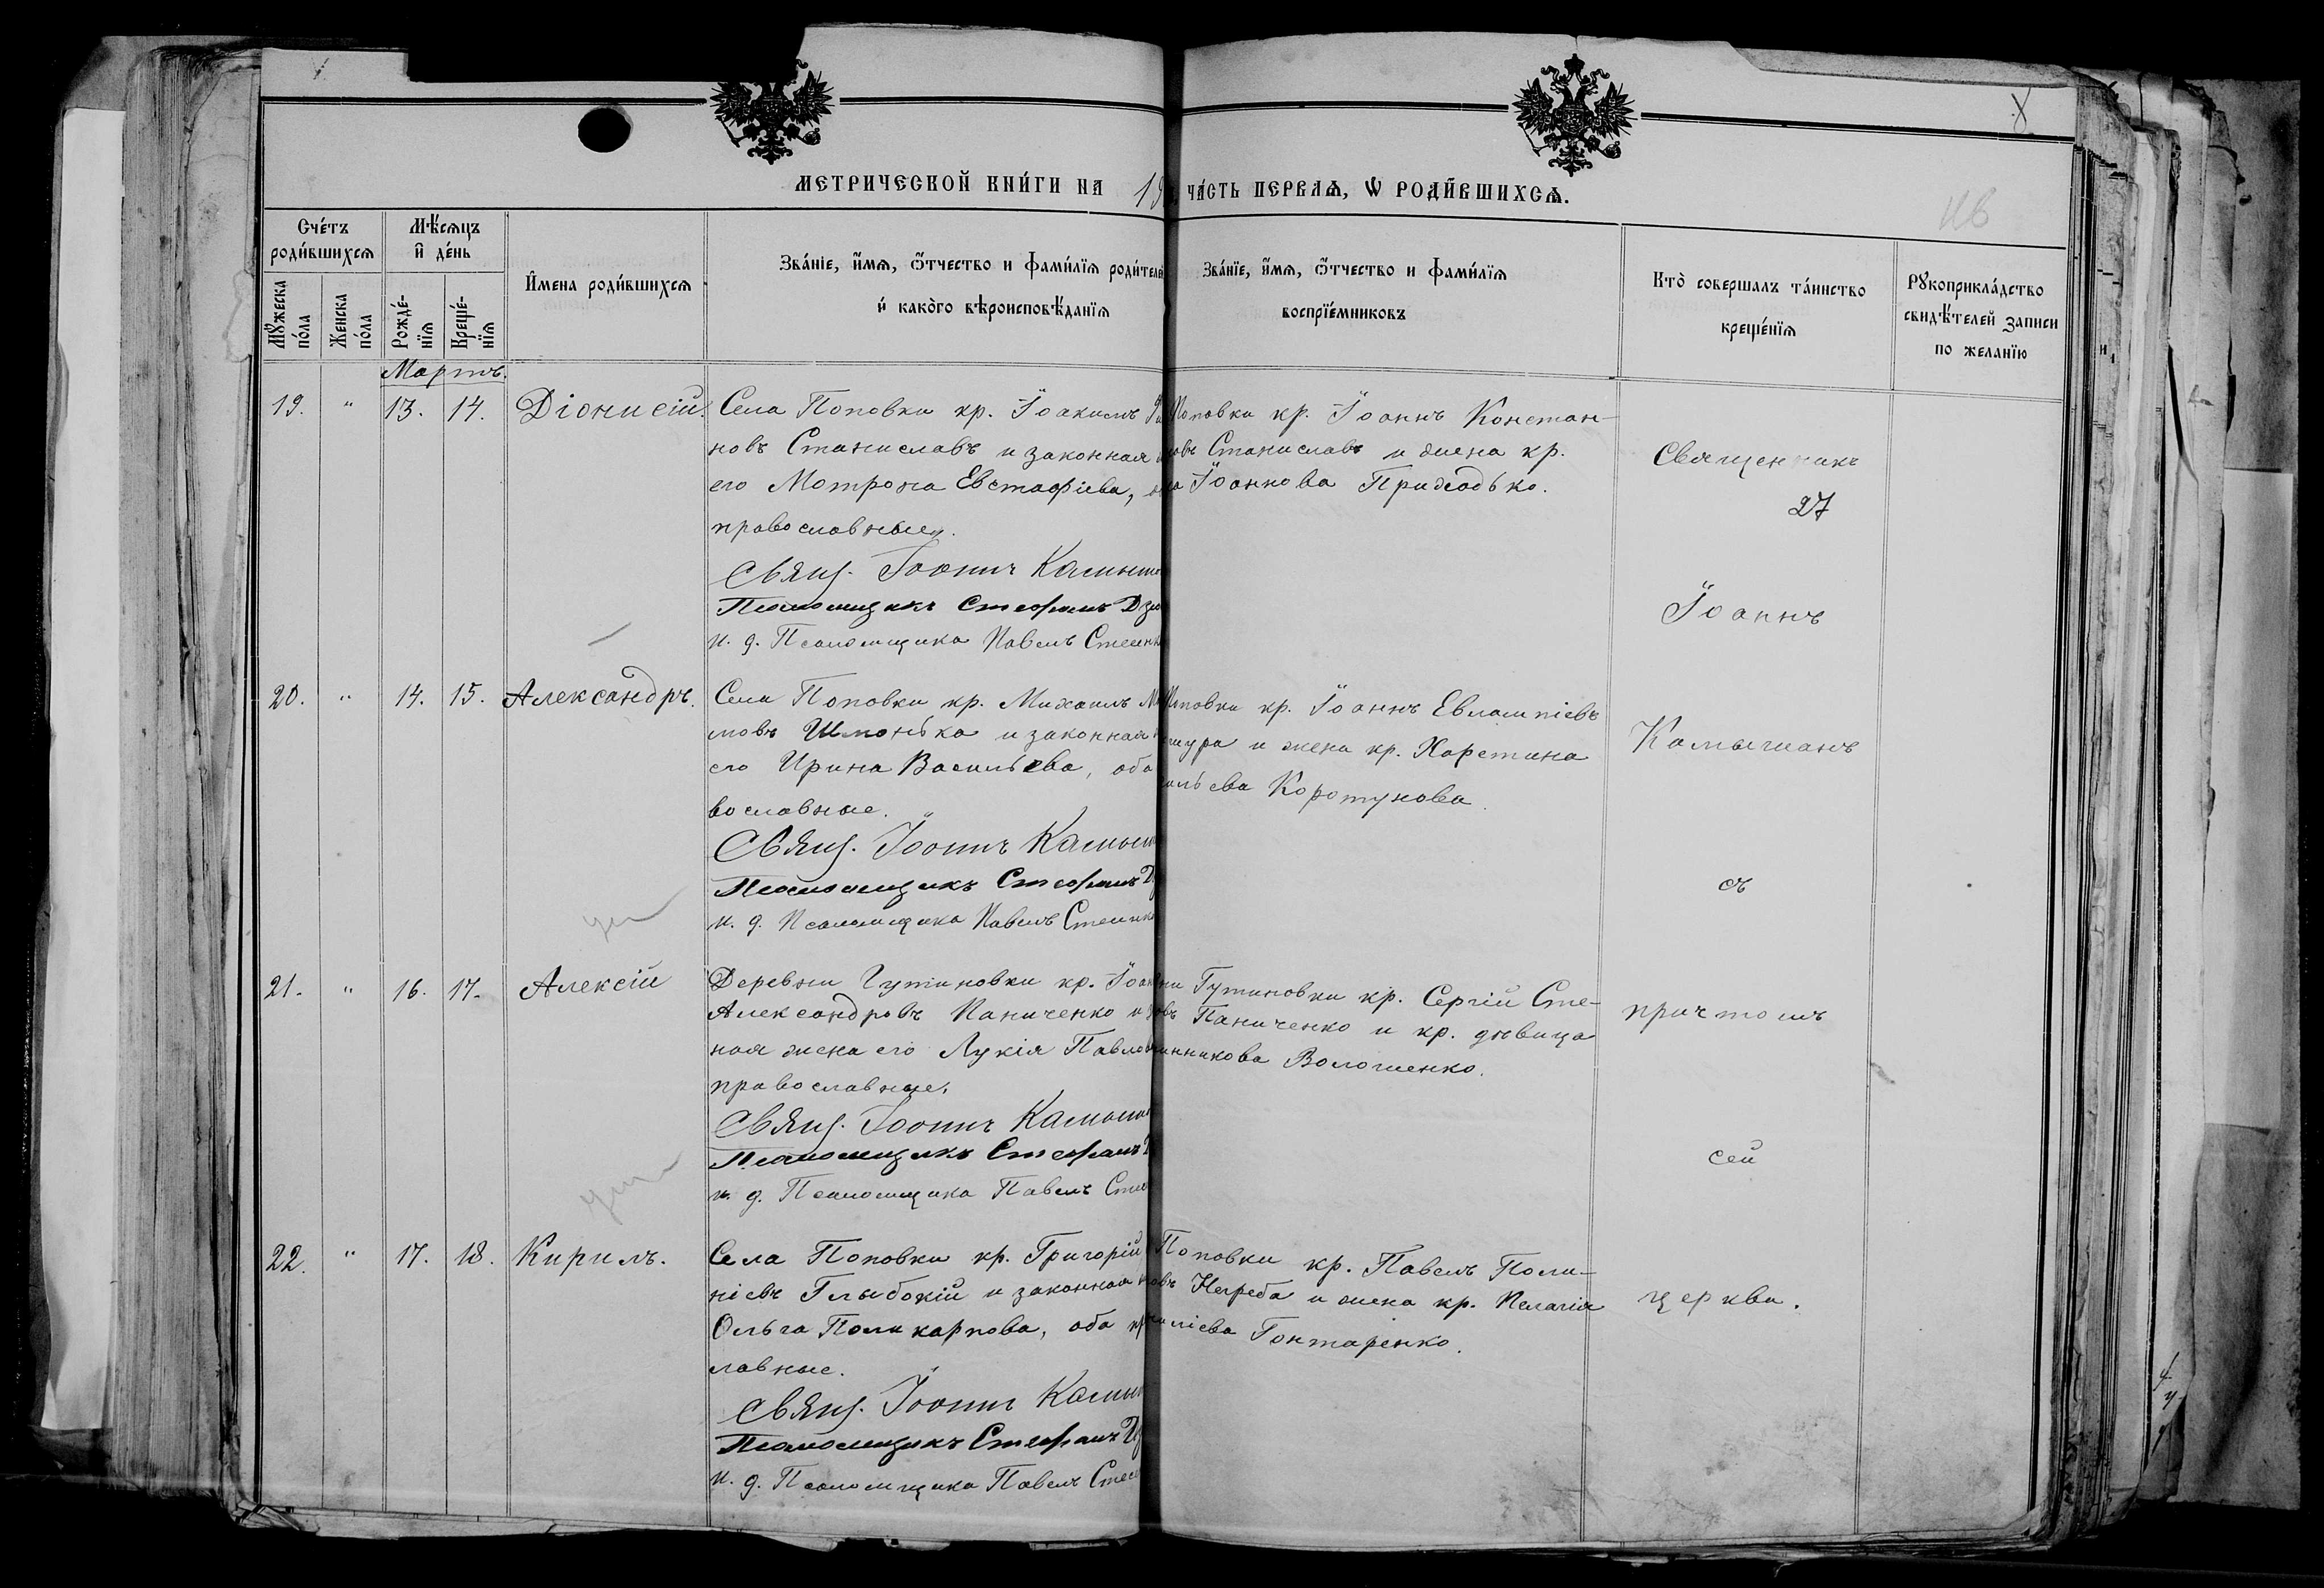 МЕТРИЧЕСКОЙ КНИ́ГИ НА 19
ЧА́СТЬ ПЕРВАѦ, Ѡ РОДИ́ВШИХСѦ.
116
Сче́тъ роди́вшихсѧ
Мѣ́сѧцъ и҆ де́нь
Мꙋ́жеска по́ла
Же́нска по́ла
Рожде́-нїѧ
Креще́-нїѧ
И҆мена роди́вшихсѧ
Зва́нїе, и҆́мѧ, ѻ҆́тчество и фами́лїѧ роди́телей
и҆ како́гѡ вѣроисповѣ́данїѧ
Зва́нїе, и҆́мѧ, ѻ҆́тчество и фами́лїѧ
воспрїе́мниковъ
Кто̀ совершалъ та́инство
креще́нїѧ
Рꙋкоприкла́дство
свидѣ́телей записи
по желанїю
Мартъ.
19. " 13. 14. Діонисій.
Села Поповки кр. Іоакимъ
новъ Станиславъ и законная
его Матрона Евстафіева,
православные.
Свящ. Іоаннъ Камыш
Псаломщикъ Стефанъ Дз
и. д. Псаломщика Павелъ Стеш
Поповки кр. Іоаннъ Констан-
овъ Станиславъ и жена кр.
Іоаннова Приходько.
Священникъ
27
Іоаннъ
20. " 14. 15. Александръ.
Села Поповки кр. Михаилъ М
мовъ Шмонька и законная
его Ирина Васильева, оба
вославные.
Свящ. Іоаннъ Камыш
Псаломщикъ Стефанъ Д
и. д. Псаломщика Павелъ Стеш
Поповки кр. Іоаннъ Евлампіевъ
ура и жена кр. Харетина
ильева Коротунова.
Камышанъ
съ
21. " 16. 17. Алексій
Деревни Гутиновки кр. Іоан
Александровъ Паниченко и з
ная жена его Лукія Павло
православные.
Свящ. Іоаннъ Камыш
Псаломщикъ Стефанъ Д
и. д. Псаломщика Павелъ Сте
ни Гутиновки кр. Сергій Сте-
овъ Паниченко и кр. дѣвица
инникова Волошенко.
причтомъ
сей
22. " 17. 18. Кирилъ.
Села Поповки кр. Григорій
ніевъ Глыбокій и законная
Ольга Поликарпова, оба пр
лавные.
Свящ. Іоаннъ Камыш
Псаломщикъ Стефанъ Дз
и. д. Псаломщика Павелъ Стеш
Поповки кр. Павелъ Поли-
овъ Негреба и жена кр. Пелагія
иліева Гонтаренко.
церкви.